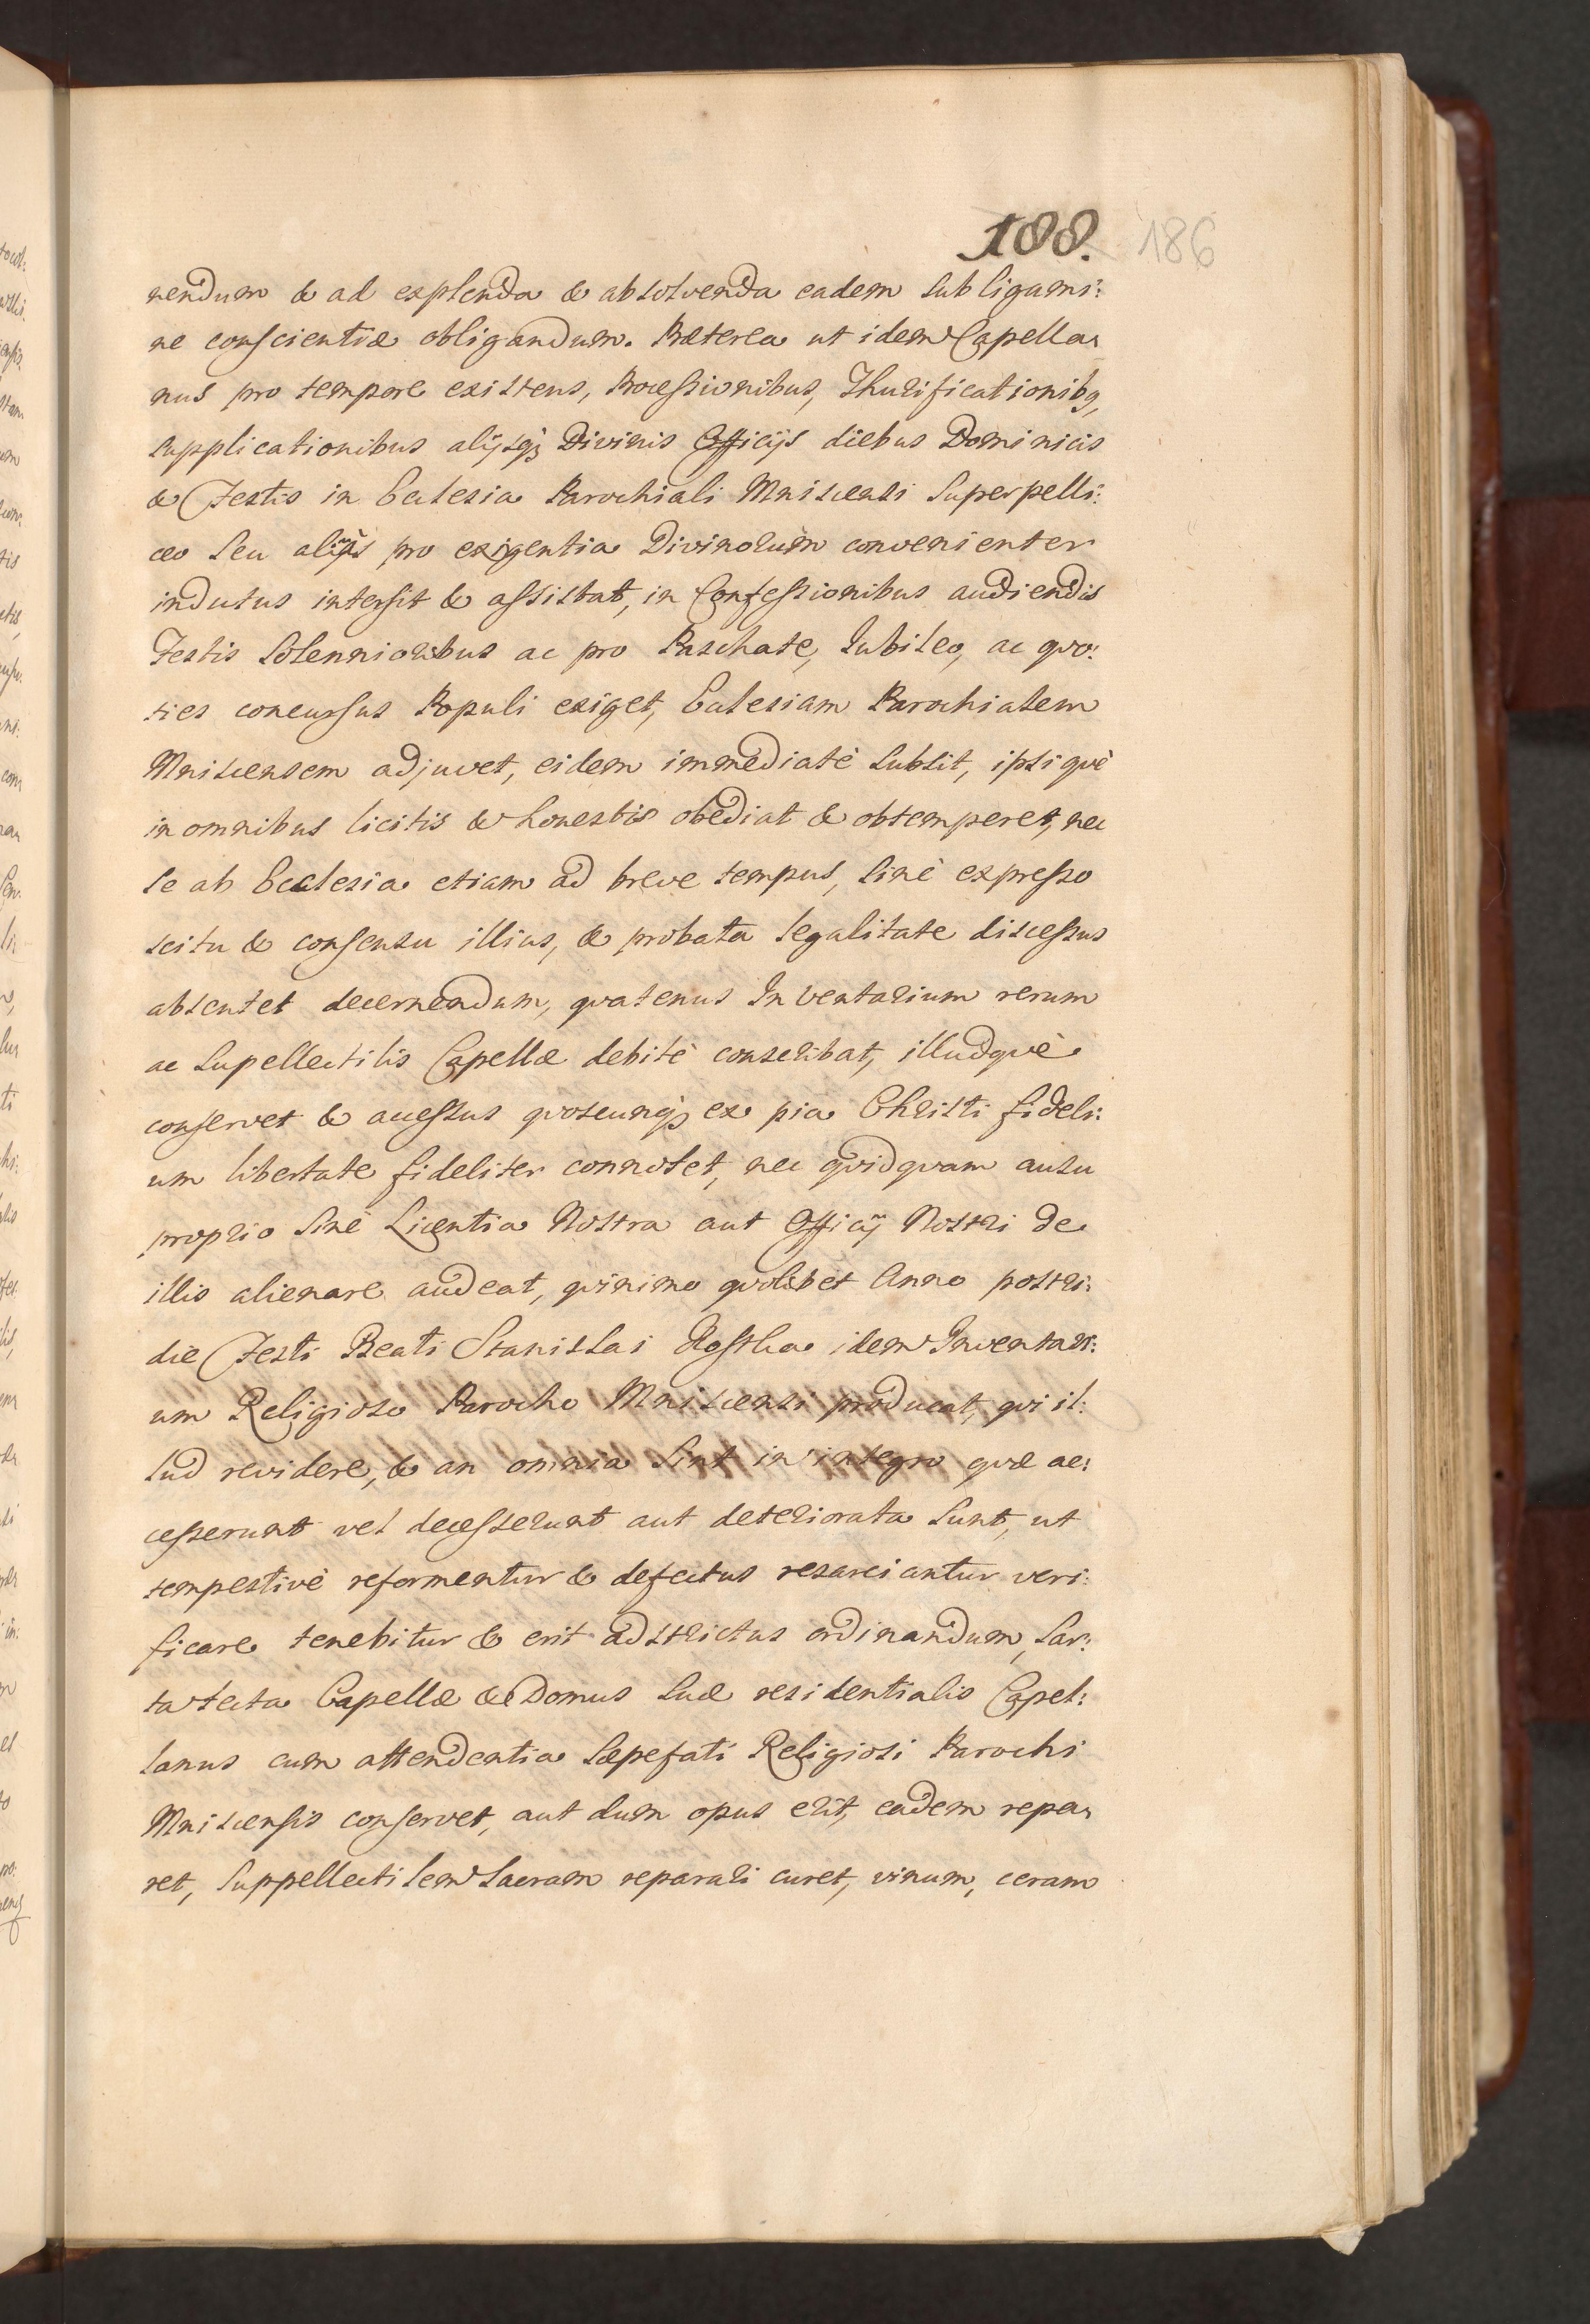 188. 186
nendum & ad explenda & absolvenda eadem sub ligami:
ne conscientiæ obligandum. Præterea ut idem Capella,
nus pro tempore existens, Processionibus, Thurificationibq,
supplicationibus alijsq; Divinis Officijs diebus Dominicis
& Festis in Ecclesia Parochiali Mniscensi Superpelli:
ceo seu alijs pro exigentia Divinorum convenienter
indutus intersit & assistat, in Confessionibus audiendis
Festis Solennioribus ac pro Paschate, Jubileo, ac quo:
ties concursus Populi exiget, Ecclesiam Parochialem
Mniscensem adjuvet, eidem immediatè subsit, ipsiquè
in omnibus licitis & honestis obediat & obtemperet, nec
se ab Ecclesia etiam ad breve tempus, sinè expresso
scitu & consensu illius, & probata legalitate discessus
absentet decernendum, quatenus Inventarium rerum
ac Supellectilis Capellæ debitè conscribat, illudquè
conservet & accessus quoscunq; ex pia Christi fideli:
um libertate fideliter connotet, nec quidquam ausu
proprio sinè Licentia Nostra aut Officij Nostri de
illis alienare audeat, quinimo quolibet Anno postri:
die Festi Beati Stanislai Kostka idem Inventari:
um Religioso Parocho Mniscensi producat, qui il:
lud revidere, & an omnia sint in integro quæ ac:
cesserunt vel decesserunt aut deteriorata sunt, ut
tempestivè reformentur & defectus resarciantur veri:
ficare tenebitur & erit adstrictus ordinandum, sar:
ta tecta Capellæ & Domus suæ residentialis Capel:
lanus cum attendentia sæpefati Religiosi Parochi
Mniscensis conservet, aut dum opus erit, eadem repa,
ret, Suppellectilem Sacram reparari curet, vinum, ceram